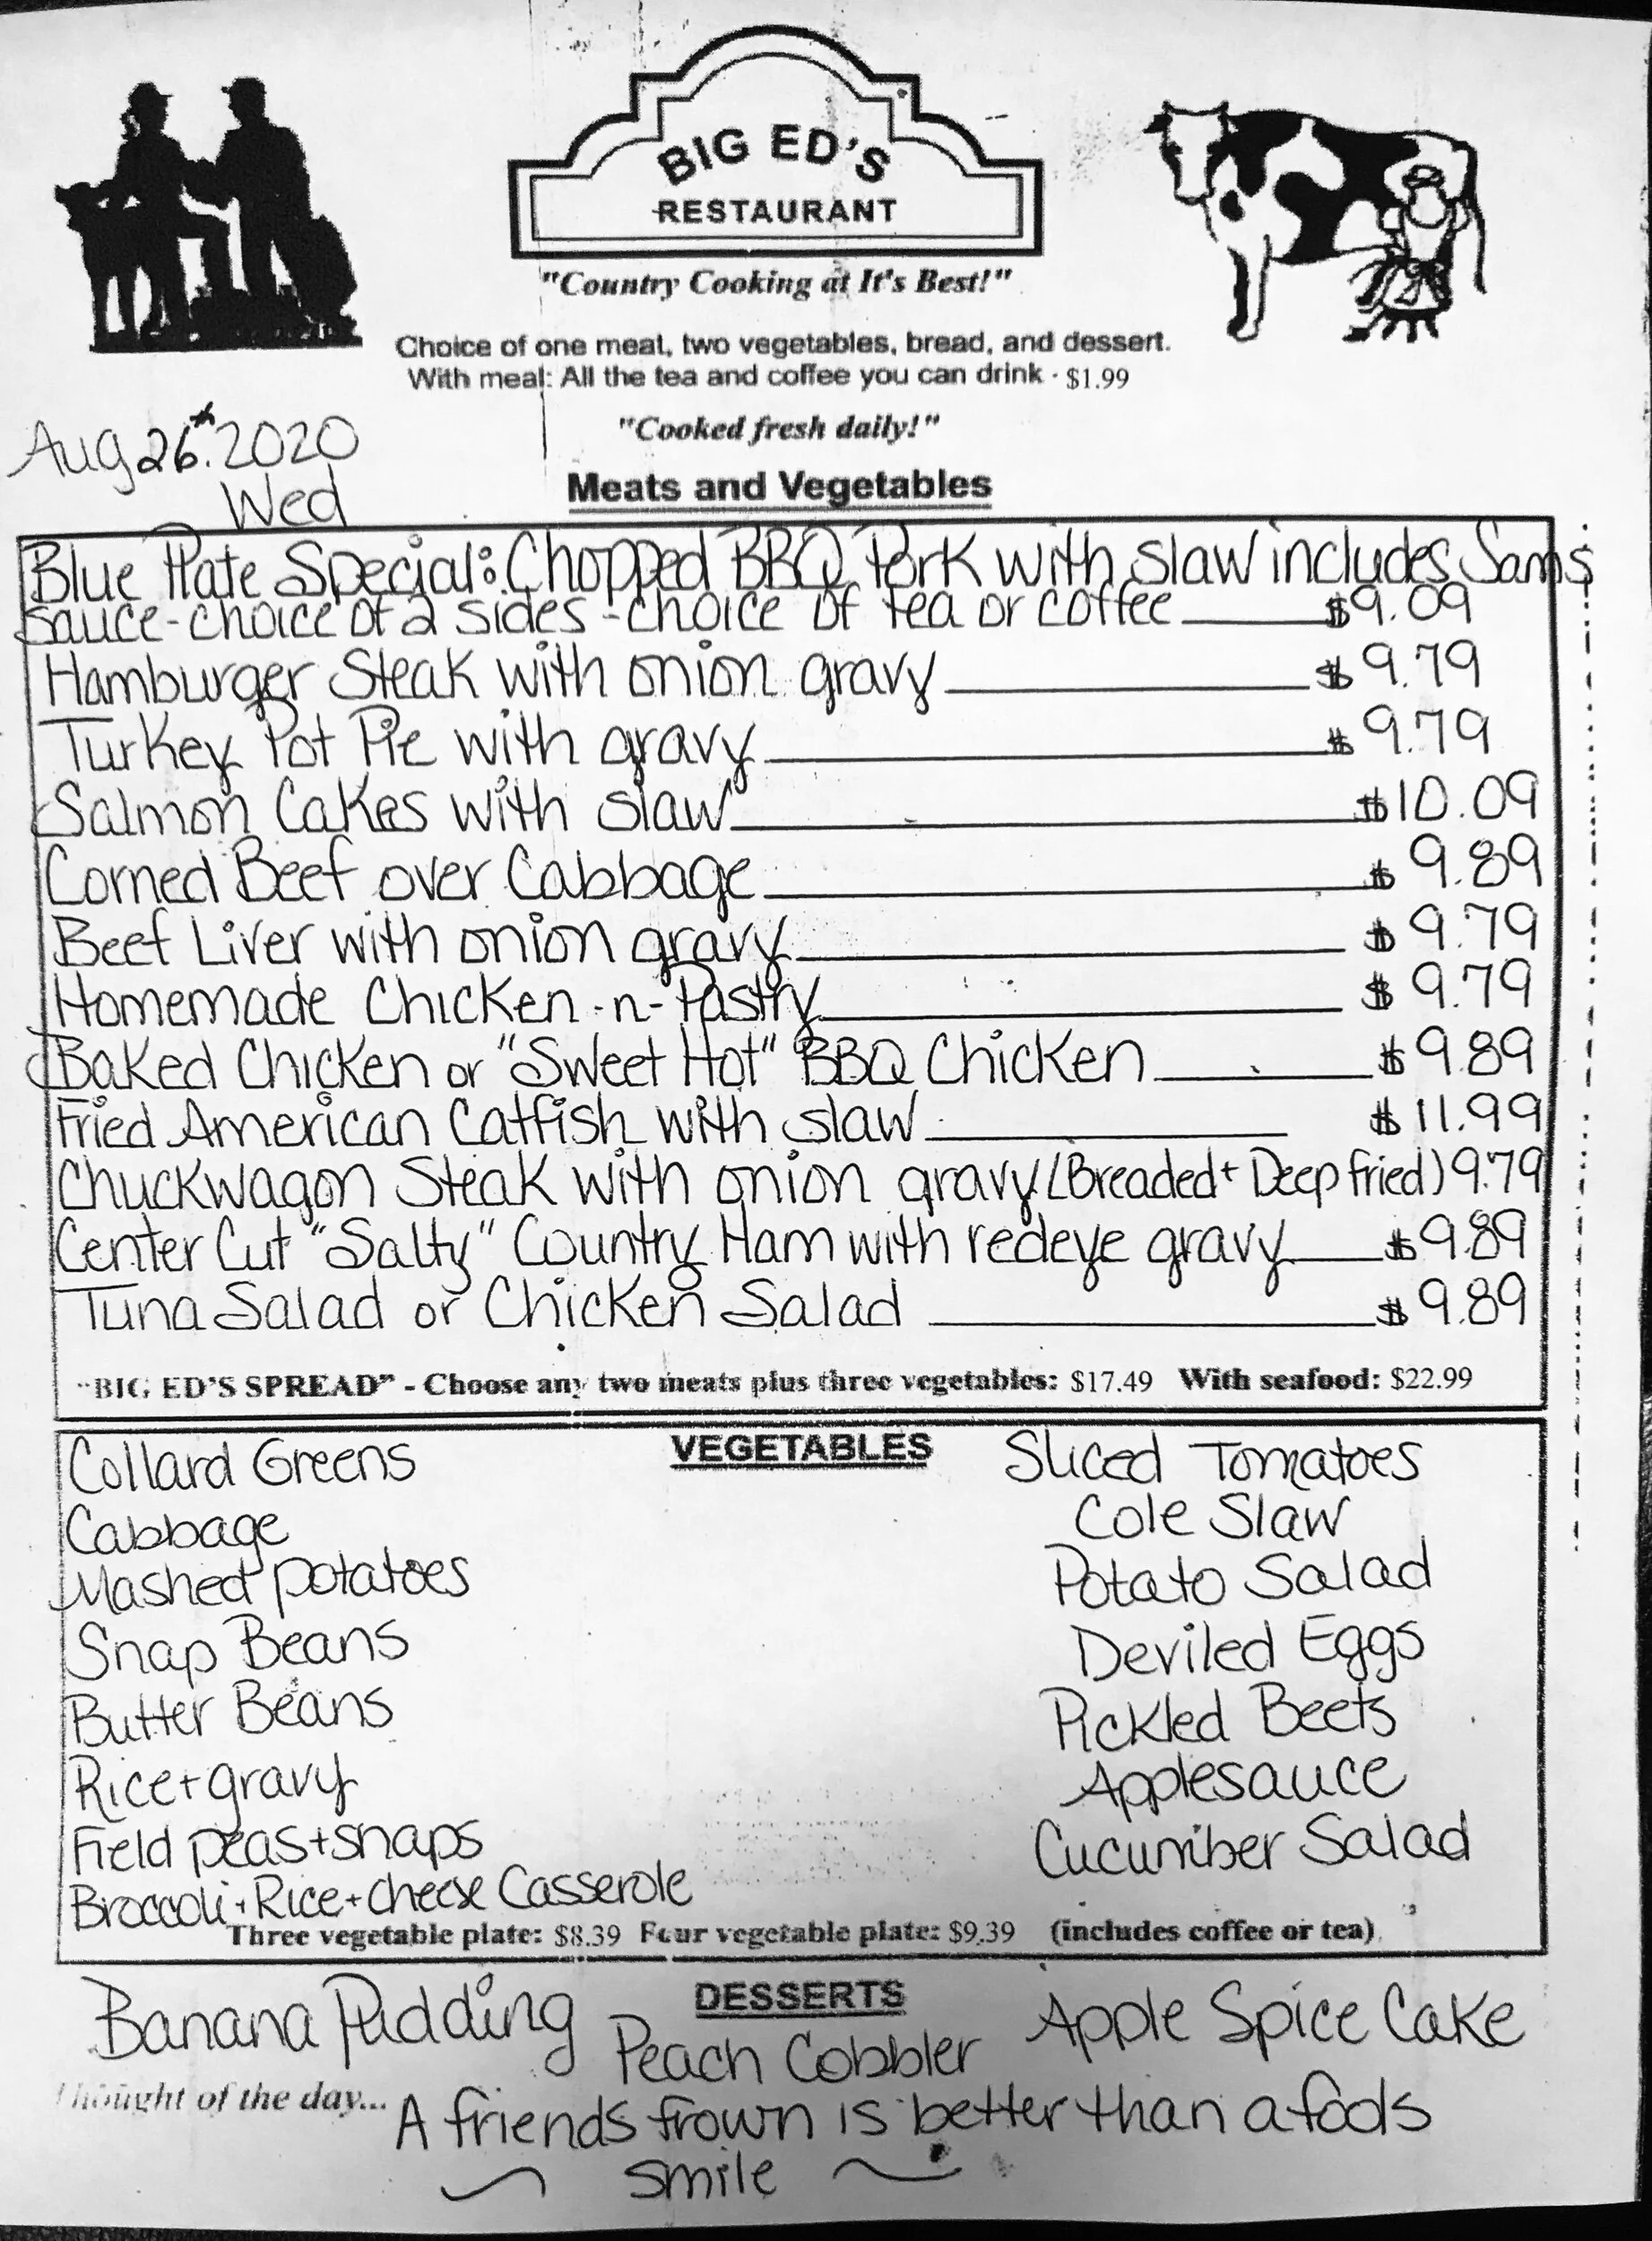 BIG ED'S
RESTAURANT
"Country Cooking at It's Best!"
Choice of one meat, two vegetables, bread, and dessert.
With meal: All the tea and coffee you can drink - $1.99
"Cooked fresh daily!"
Aug 26th. 2020
Wed
Meats and Vegetables
Blue Plate Special: Chopped BBQ Pork with slaw includes Sams
sauce - choice of 2 sides - choice of tea or coffee $9.09
Hamburger Steak with onion gravy $9.79
Turkey Pot Pie with gravy $9.79
Salmon Cakes with slaw $10.09
Corned Beef over Cabbage $9.89
Beef Liver with onion gravy $9.79
Homemade Chicken -n- Pastry $9.79
Baked Chicken or "Sweet Hot" BBQ Chicken $9.89
Fried American Catfish with slaw $11.99
Chuckwagon Steak with onion gravy (Breaded + Deep fried) 9.79
Center Cut "Salty" Country Ham with redeye gravy $9.89
Tuna Salad or Chicken Salad $9.89
"BIG ED'S SPREAD" - Choose any two meats plus three vegetables: $17.49 With seafood: $22.99
VEGETABLES
Collard Greens
Cabbage
Mashed potatoes
Snap Beans
Butter Beans
Rice + gravy
Field peas + snaps
Broccoli + Rice + cheese Casserole
Sliced Tomatoes
Cole Slaw
Potato Salad
Deviled Eggs
Pickled Beets
Applesauce
Cucumber Salad
Three vegetable plate: $8.39 Four vegetable plate: $9.39 (includes coffee or tea)
DESSERTS
Banana Pudding
Peach Cobbler
Apple Spice Cake
Thought of the day...
A friends frown is better than a fools
smile